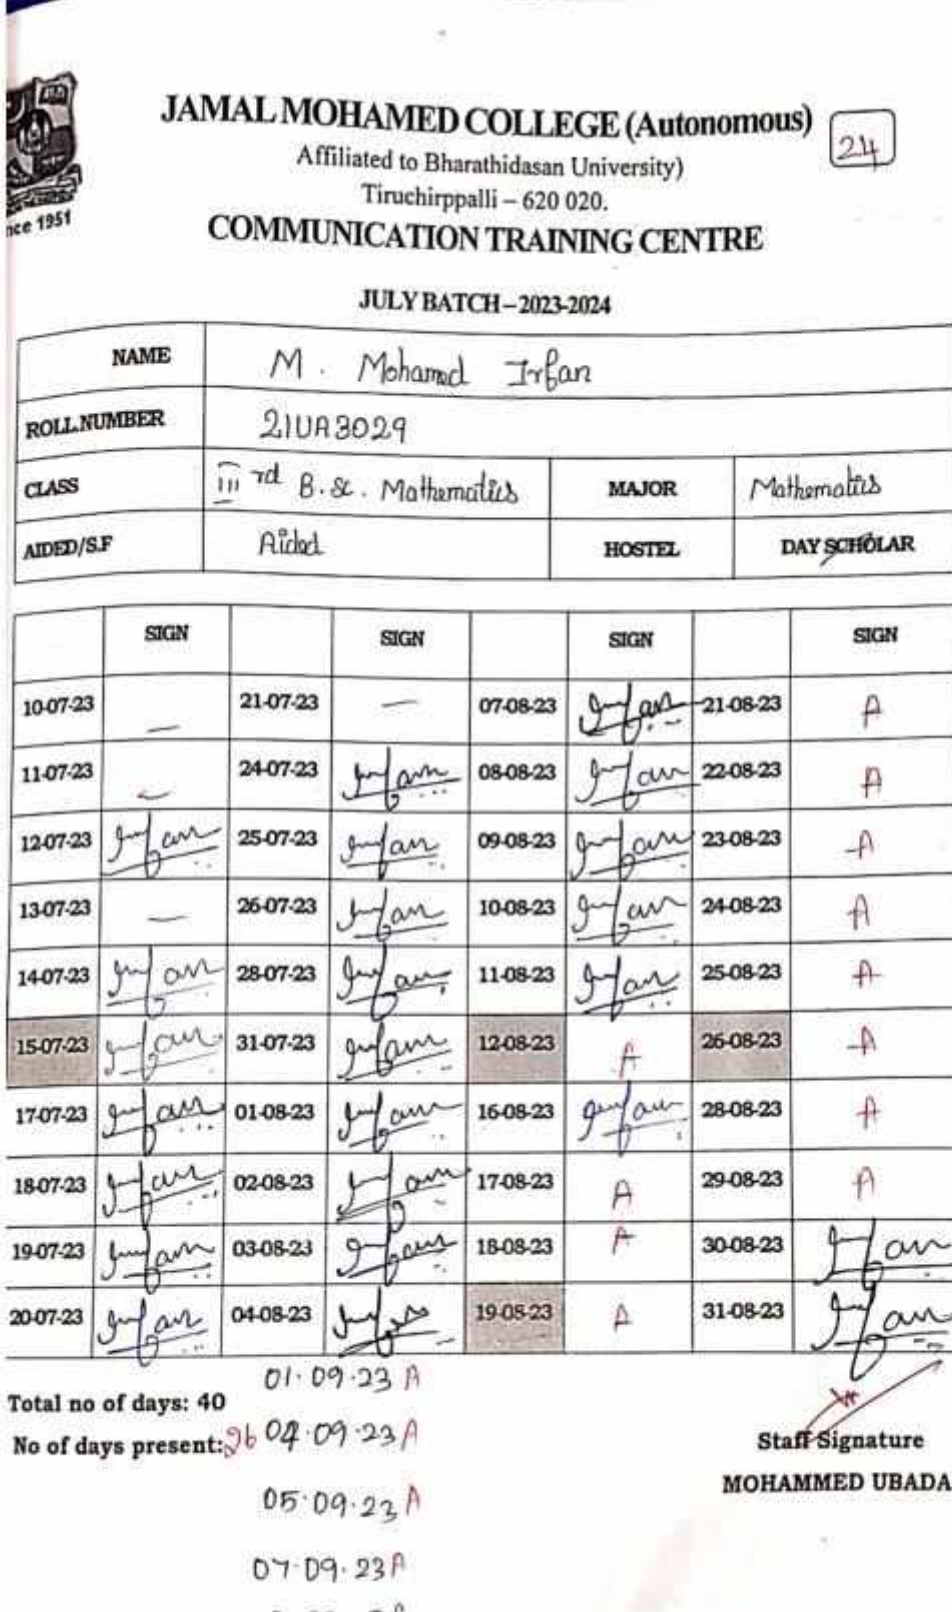 JAMAL MOHAMED COLLEGE (Autonomous)
24
Affiliated to Bharathidasan University)
Tiruchirppalli – 620 020.
nce 1951
COMMUNICATION TRAINING CENTRE
JULY BATCH – 2023-2024
NAME M. Mohamed Irfan
ROLL NUMBER 21UA3029
CLASS III rd B.Sc. Mathematics MAJOR Mathematics
AIDED/S.F Aided HOSTEL DAY SCHOLAR
SIGN SIGN SIGN SIGN
10-07-23 — 21-07-23 — 07-08-23 Irfan 21-08-23 A
11-07-23 — 24-07-23 Irfan 08-08-23 Irfan 22-08-23 A
12-07-23 Irfan 25-07-23 Irfan 09-08-23 Irfan 23-08-23 A
13-07-23 — 26-07-23 Irfan 10-08-23 Irfan 24-08-23 A
14-07-23 Irfan 28-07-23 Irfan 11-08-23 Irfan 25-08-23 A
15-07-23 Irfan 31-07-23 Irfan 12-08-23 A 26-08-23 A
17-07-23 Irfan 01-08-23 Irfan 16-08-23 Irfan 28-08-23 A
18-07-23 Irfan 02-08-23 Irfan 17-08-23 A 29-08-23 A
19-07-23 Irfan 03-08-23 Irfan 18-08-23 A 30-08-23 Irfan
20-07-23 Irfan 04-08-23 Irfan 19-08-23 A 31-08-23 Irfan
01.09.23 A
Total no of days: 40
No of days present: 26 04.09.23 A
Staff Signature
05.09.23 A
MOHAMMED UBADA
07.09.23 A